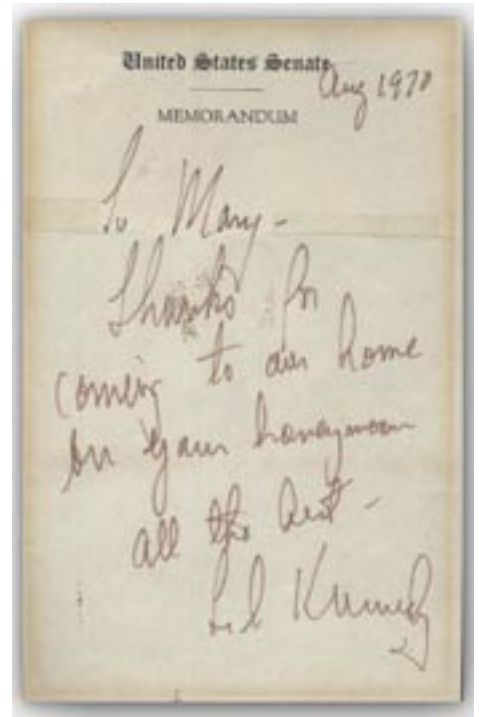 United States Senate
Aug 1970
MEMORANDUM
To Mary-
Thanks for
coming to our home
on your honeymoon
all the best-
Ted Kennedy